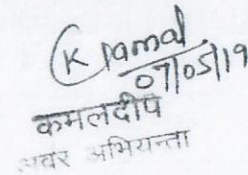 Kamal
07/05/19
कमलदीप
अवर अभियन्ता